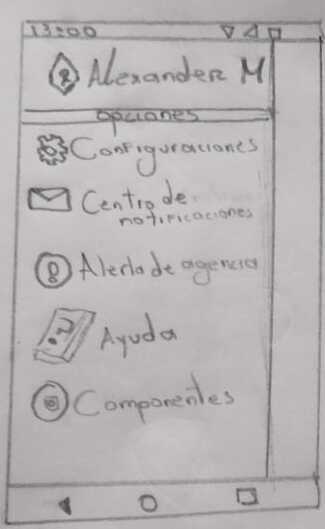 13:00
Alexander M
opciones
Configuraciones
Centro de
notificaciones
Alerta de agencia
Ayuda
Componentes